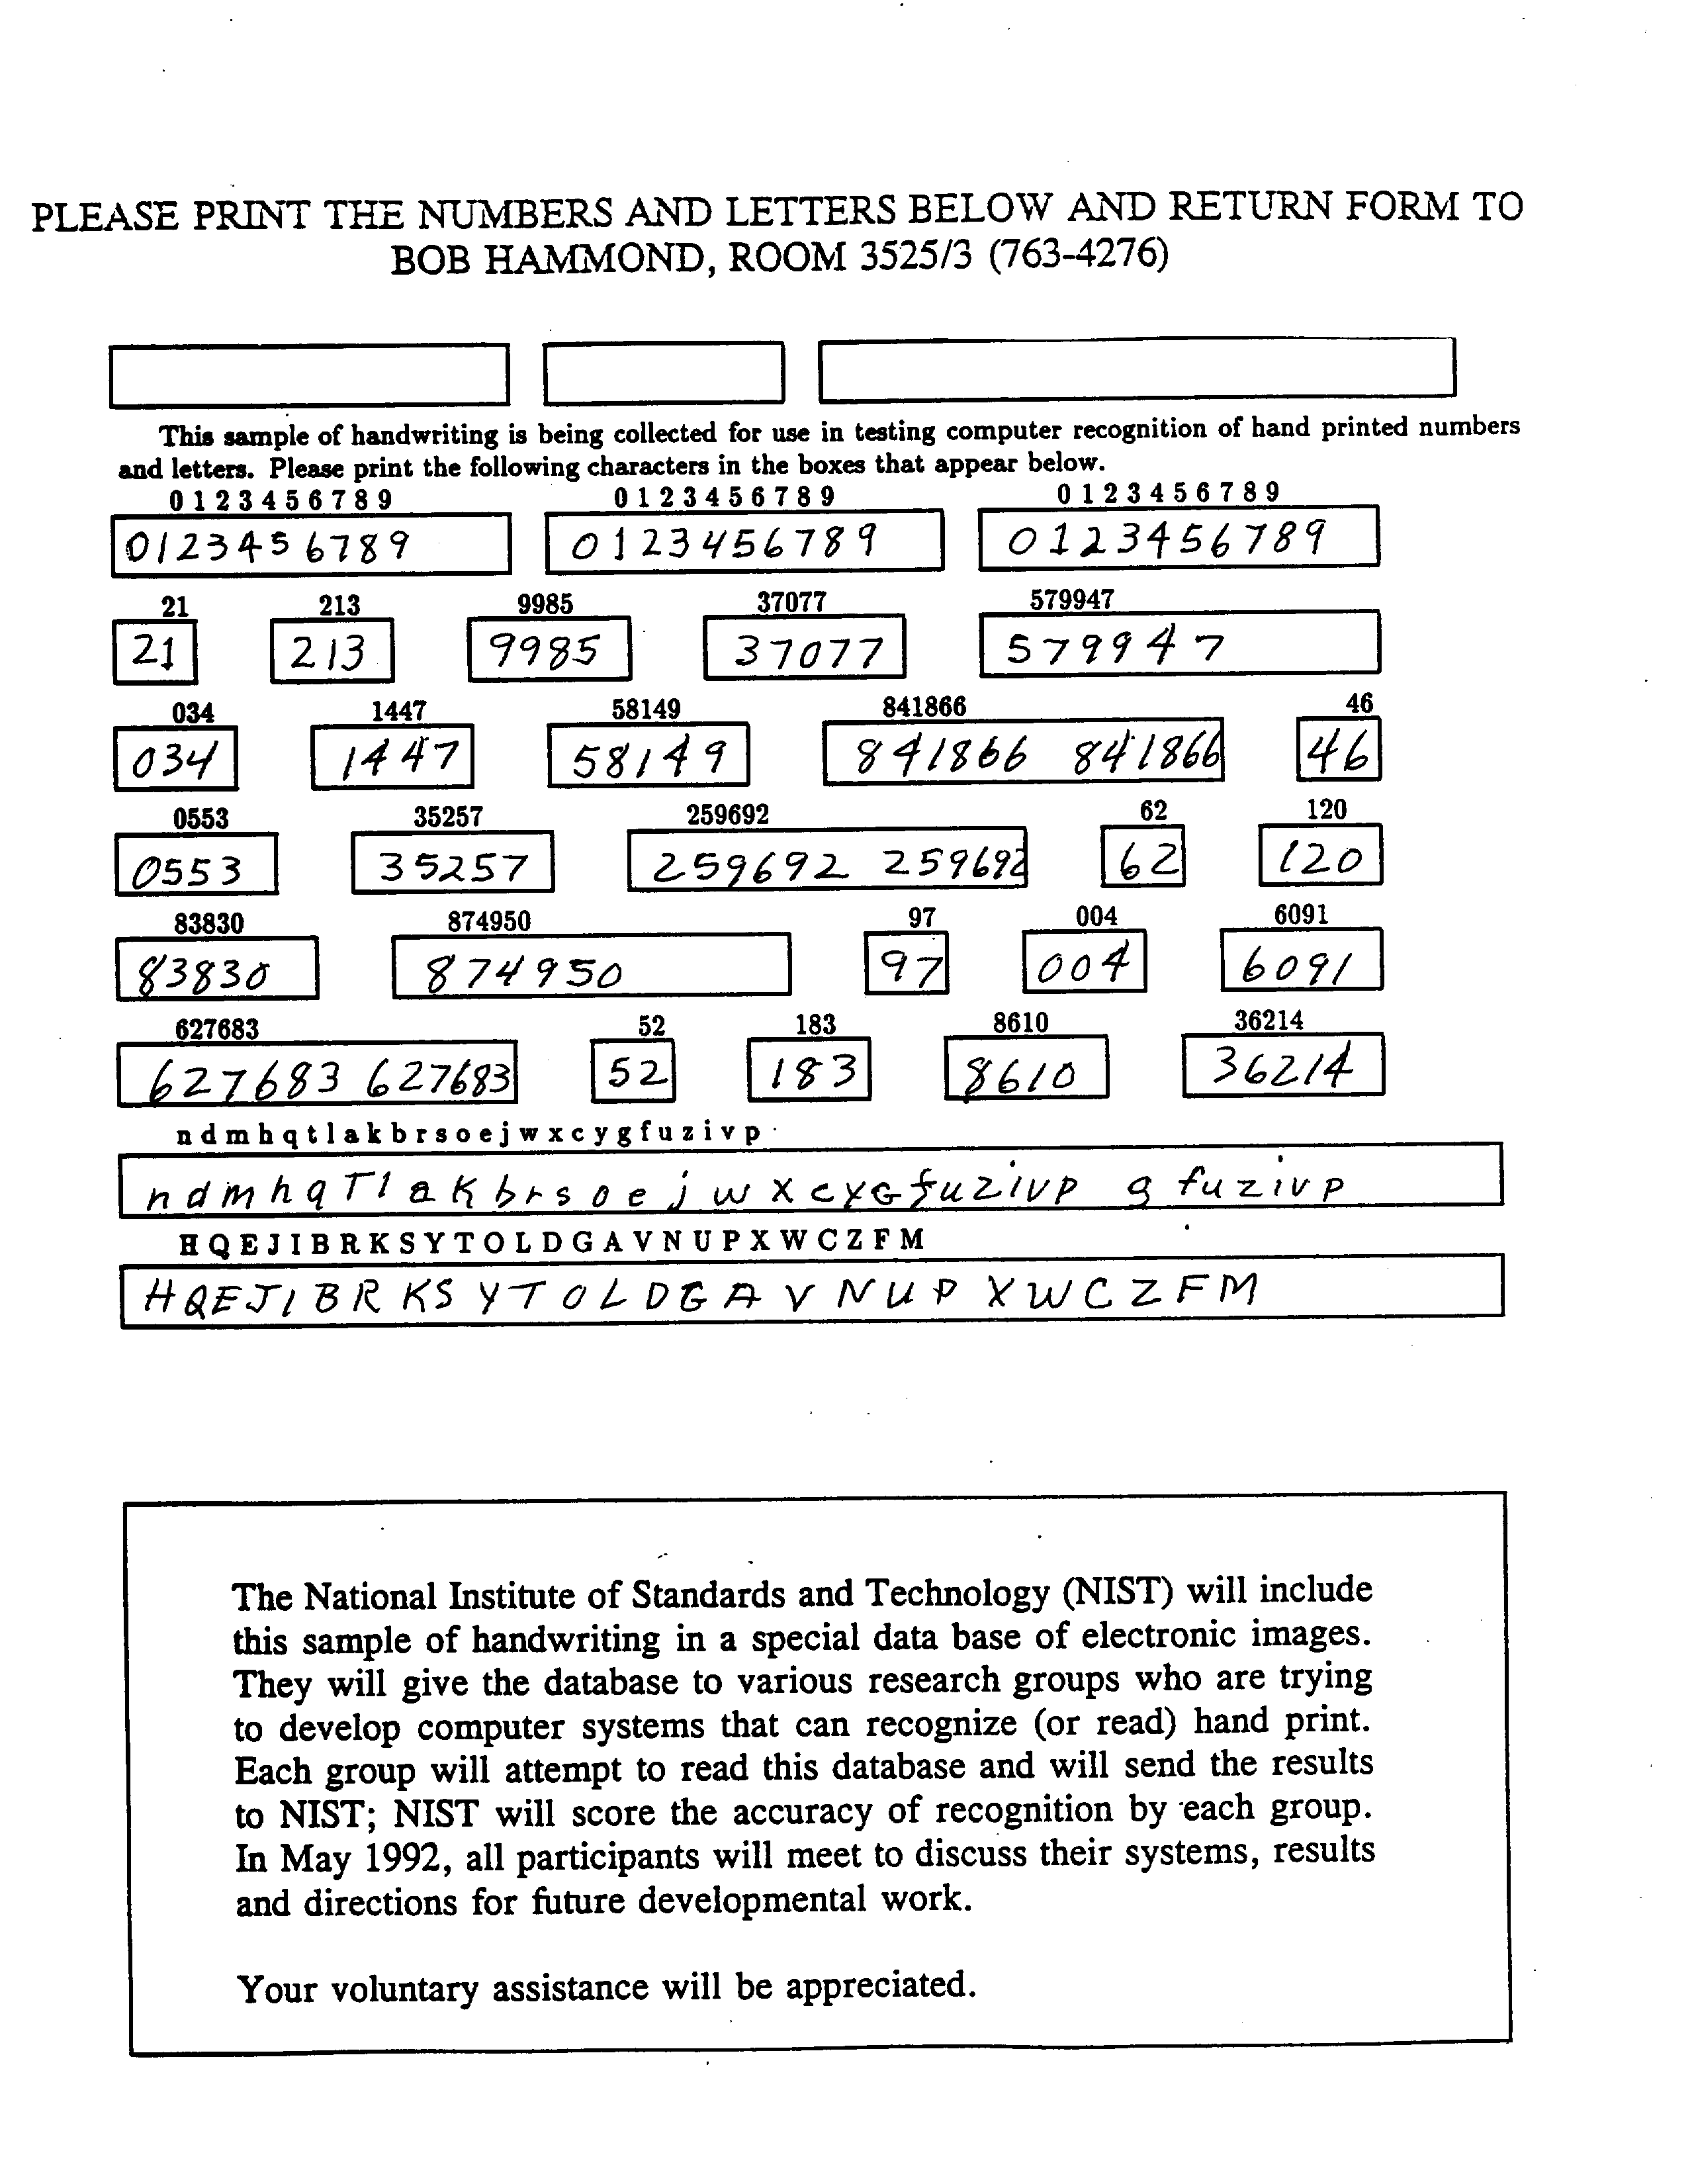 PLEASE PRINT THE NUMBERS AND LETTERS BELOW AND RETURN FORM TO
BOB HAMMOND, ROOM 3525/3 (763-4276)
This sample of handwriting is being collected for use in testing computer recognition of hand printed numbers
and letters. Please print the following characters in the boxes that appear below.
0 1 2 3 4 5 6 7 8 9 0 1 2 3 4 5 6 7 8 9 0 1 2 3 4 5 6 7 8 9
0123456789 0123456789 0123456789
21 213 9985 37077 579947
21 213 9985 37077 579947
034 1447 58149 841866 46
034 1447 58149 841866 841866 46
0553 35257 259692 62 120
0553 35257 259692 259692 62 120
83830 874950 97 004 6091
83830 874950 97 004 6091
627683 52 183 8610 36214
627683 627683 52 183 8610 36214
n d m h q t l a k b r s o e j w x c y g f u z i v p
n d m h q T l a K b r s o e j w x c y G f u z i v p g f u z i v p
H Q E J I B R K S Y T O L D G A V N U P X W C Z F M
H Q E J I B R K S Y T O L D G A V N U P X W C Z F M
The National Institute of Standards and Technology (NIST) will include
this sample of handwriting in a special data base of electronic images.
They will give the database to various research groups who are trying
to develop computer systems that can recognize (or read) hand print.
Each group will attempt to read this database and will send the results
to NIST; NIST will score the accuracy of recognition by each group.
In May 1992, all participants will meet to discuss their systems, results
and directions for future developmental work.
Your voluntary assistance will be appreciated.